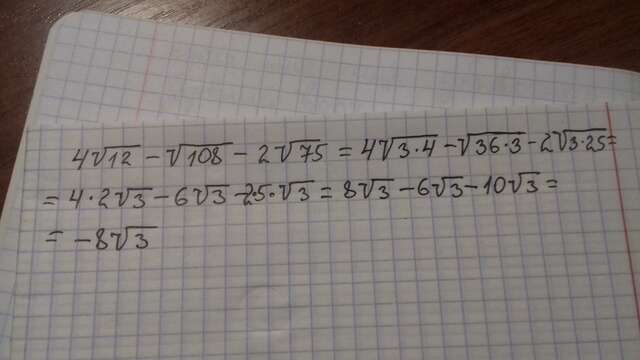 4√12 − √108 − 2√75 = 4√3·4 − √36·3 − 2√3·25 =
= 4·2√3 − 6√3 − 2·5·√3 = 8√3 − 6√3 − 10√3 =
= −8√3